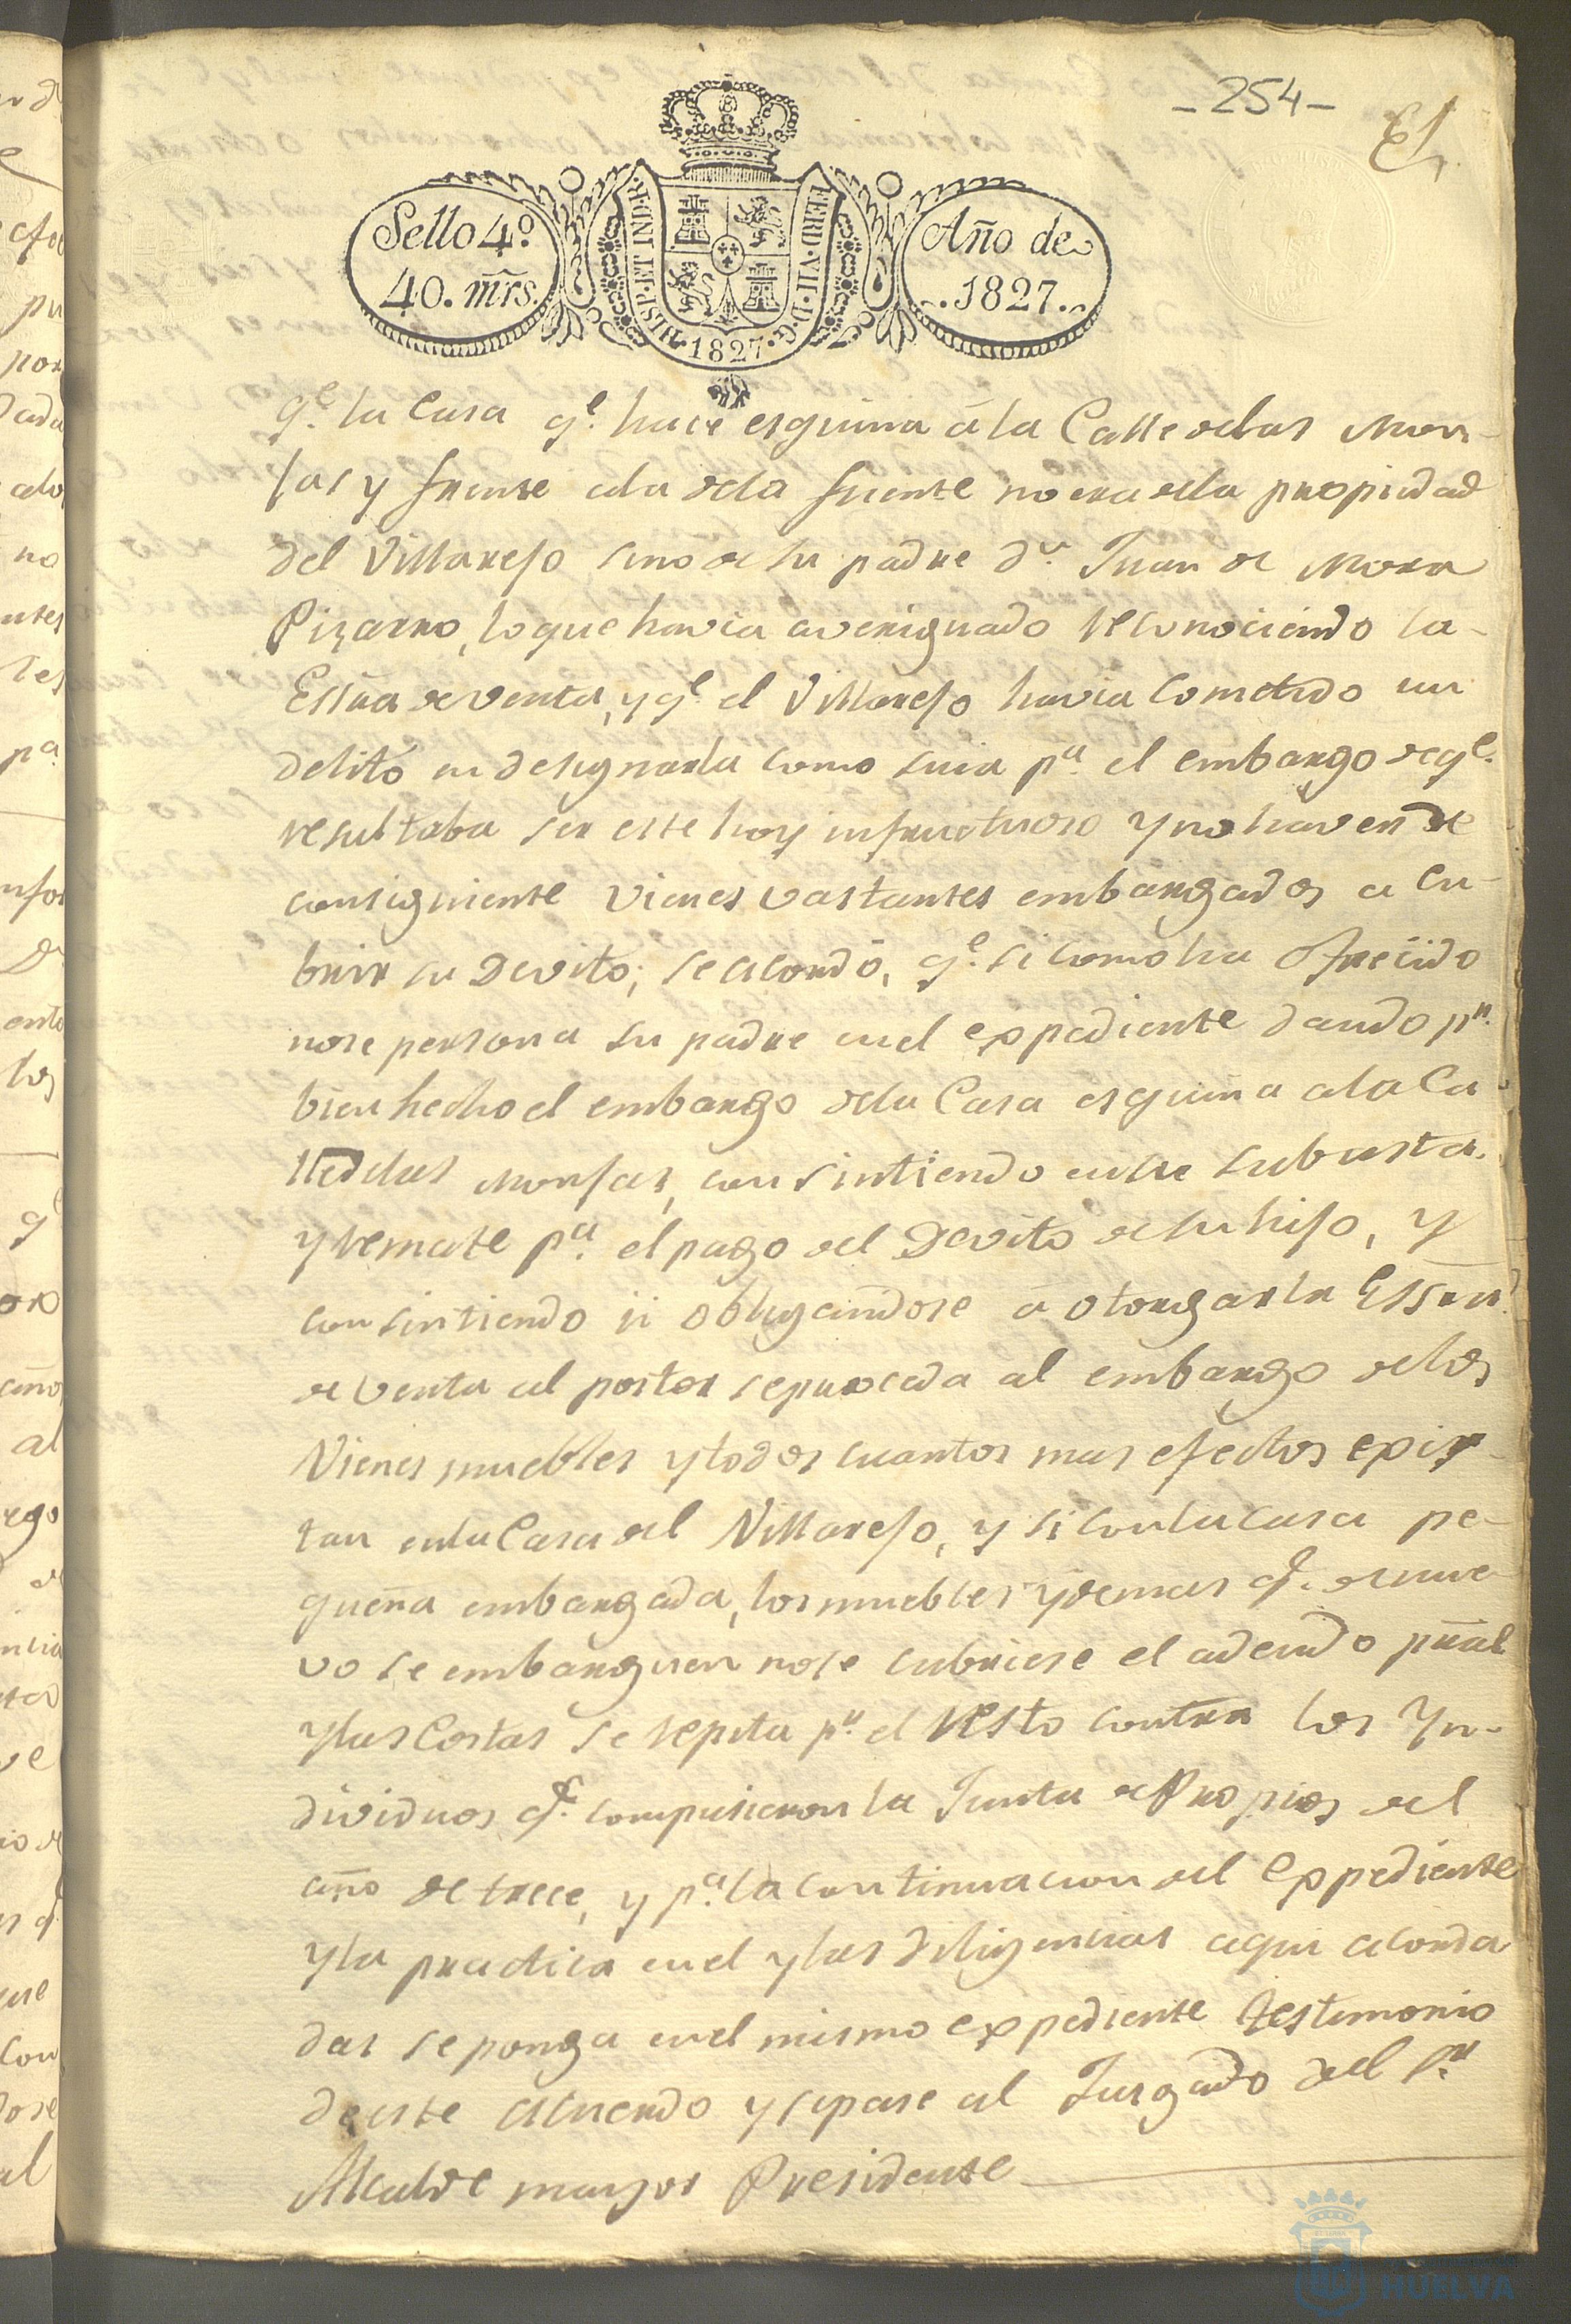 - 254 -
Sello 4º
40. mrs.
HISP. ET IND. R.
FERD. VII. D. G.
· 1827 ·
Año de
. 1827 .
qe. la Casa qe. hace esquina á la Calle delas Mon-
jas y frente ala dela fuente no era dela propiedad
del Villarejo sino de su padre dn. Juan de Mora
Pizarro, lo que havia averiguado reconociendo la
Essra de venta, y qe. el Villarejo havia cometido un
delito en designarla como suia pa. el embargo de qe.
resultaba ser este hoy infructuoso y no haver de
consiguiente vienes vastantes embargados a cu-
brir su Devito; se acordó, qe. si como ha ofrecido
nose persona su padre en el expediente dando pr.
bien hecho el embargo dela Casa esquina ala Ca
lledelas Monjas, consintiendo en su subasta
y remate pa. el pago del Devito de su hijo, y
consintiendo ii obligandose á otorgar la Essra.
de venta al postor seproceda al embargo delos
Vienes muebles y todos cuantos mas efectos exis-
tan enla Casa del Villarejo, y si con la casa pe-
queña embargada, los muebles y demas qe. de nue-
vo se embarguen nose cubriese el adeudo pral
y las Costas se repita pr. el resto contra los Yn-
dividuos qe. compusieron la Junta de Propios del
año de trece, y pa. la continuacion del Expediente
y la practica en el y las diligencias aqui acorda
das se ponga en el mismo expediente testimonio
de este acuerdo y se pase al Juzgado del Sr.
Alcalde mayor Presidente
HUELVA